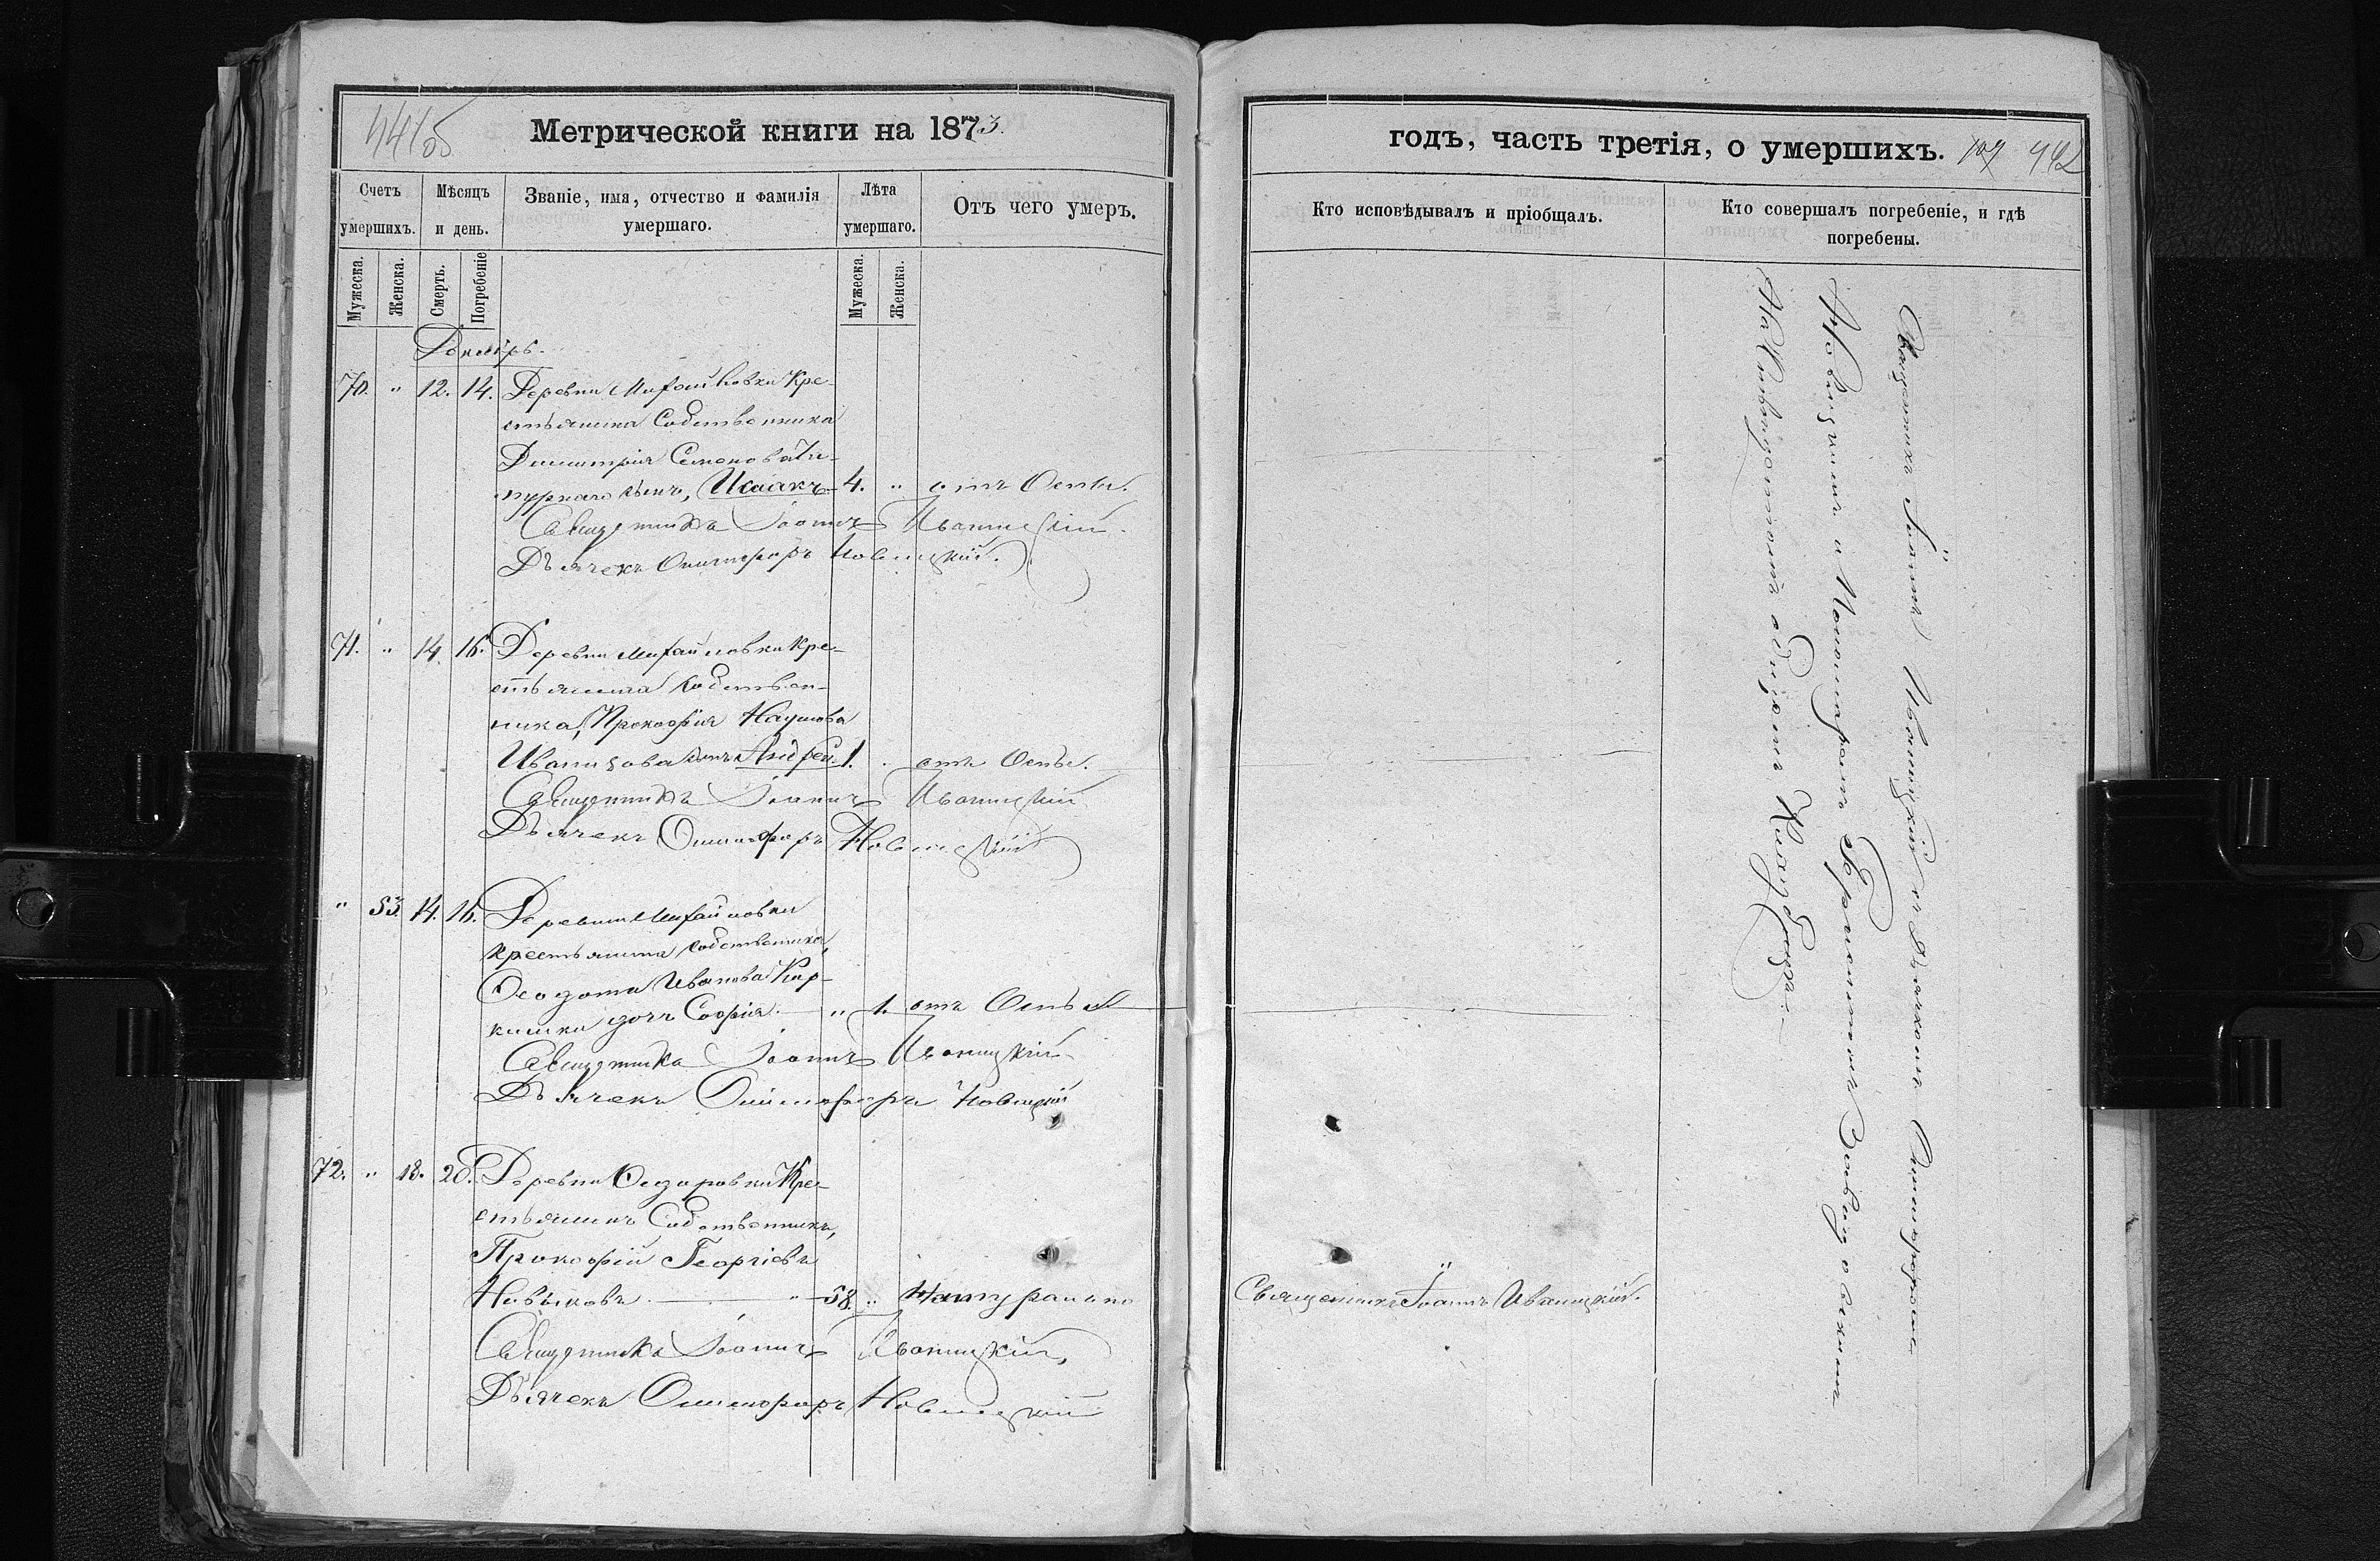 Метрической книги на 1873.
Счетъ умершихъ.
Мѣсяцъ и день.
Званіе, имя, отчество и фамилія умершаго.
Лѣта умершаго.
Отъ чего умеръ.
Мужеска.
Женска.
Смерть.
Погребеніе
Мужеска.
Женска.
Декабрь.
70. " 12. 14. Деревни Михайловки Кре-
стьянина Собственника
Димитрія Семенова
сынъ, Исаакъ 4. " отъ Оспы.
Священникъ Іоаннъ Иваницкій.
Дьячекъ Онисифоръ Новицкій.
71. " 14. 16. Деревни Михайловки Кре-
стьянина Собствен-
ника, Прокофія Наумова
Иванцова сынъ Андрей 1. отъ Оспы.
Священникъ Іоаннъ Иваницкій
Дьячекъ Онисифоръ Новицкій
" 53. 14. 16. Деревни Михайловки
Крестьянина Собственника,
Ѳеодота Иванова
дочь Софія. " 1. отъ Оспы
Священникъ Іоаннъ Иваницкій
Дьячекъ Онисифоръ Новицкій
72. " 18. 20. Деревни Ѳедоровки Кре-
стьянинъ Собственникъ,
Прокофій Георгіевъ
Новыковъ 58. " Натурально
Священникъ Іоаннъ Иваницкій,
Дьячекъ Онисифоръ Новицкій
годъ, часть третія, о умершихъ. 442
Кто исповѣдывалъ и пріобщалъ.
Кто совершалъ погребеніе, и гдѣ погребены.
Священникъ Іоаннъ Иваницкій.
Священникъ Іоаннъ Иваницкій съ Дьячкомъ Онисифоромъ
Новицкимъ и Пономаремъ
На приходскомъ общемъ Кладбищѣ.